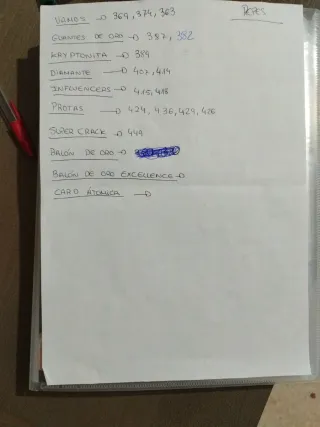 REPES
→ 369, 374, 363
GUANTES DE ORO → 387, 382
KRYPTONITA → 389
DIAMANTE → 407, 414
INFLUENCERS → 415, 418
PROTAS → 424, 436, 429, 426
SUPER CRACK → 449
BALÓN DE ORO →
BALÓN DE ORO EXCELLENCE →
CARD ATOMICA →